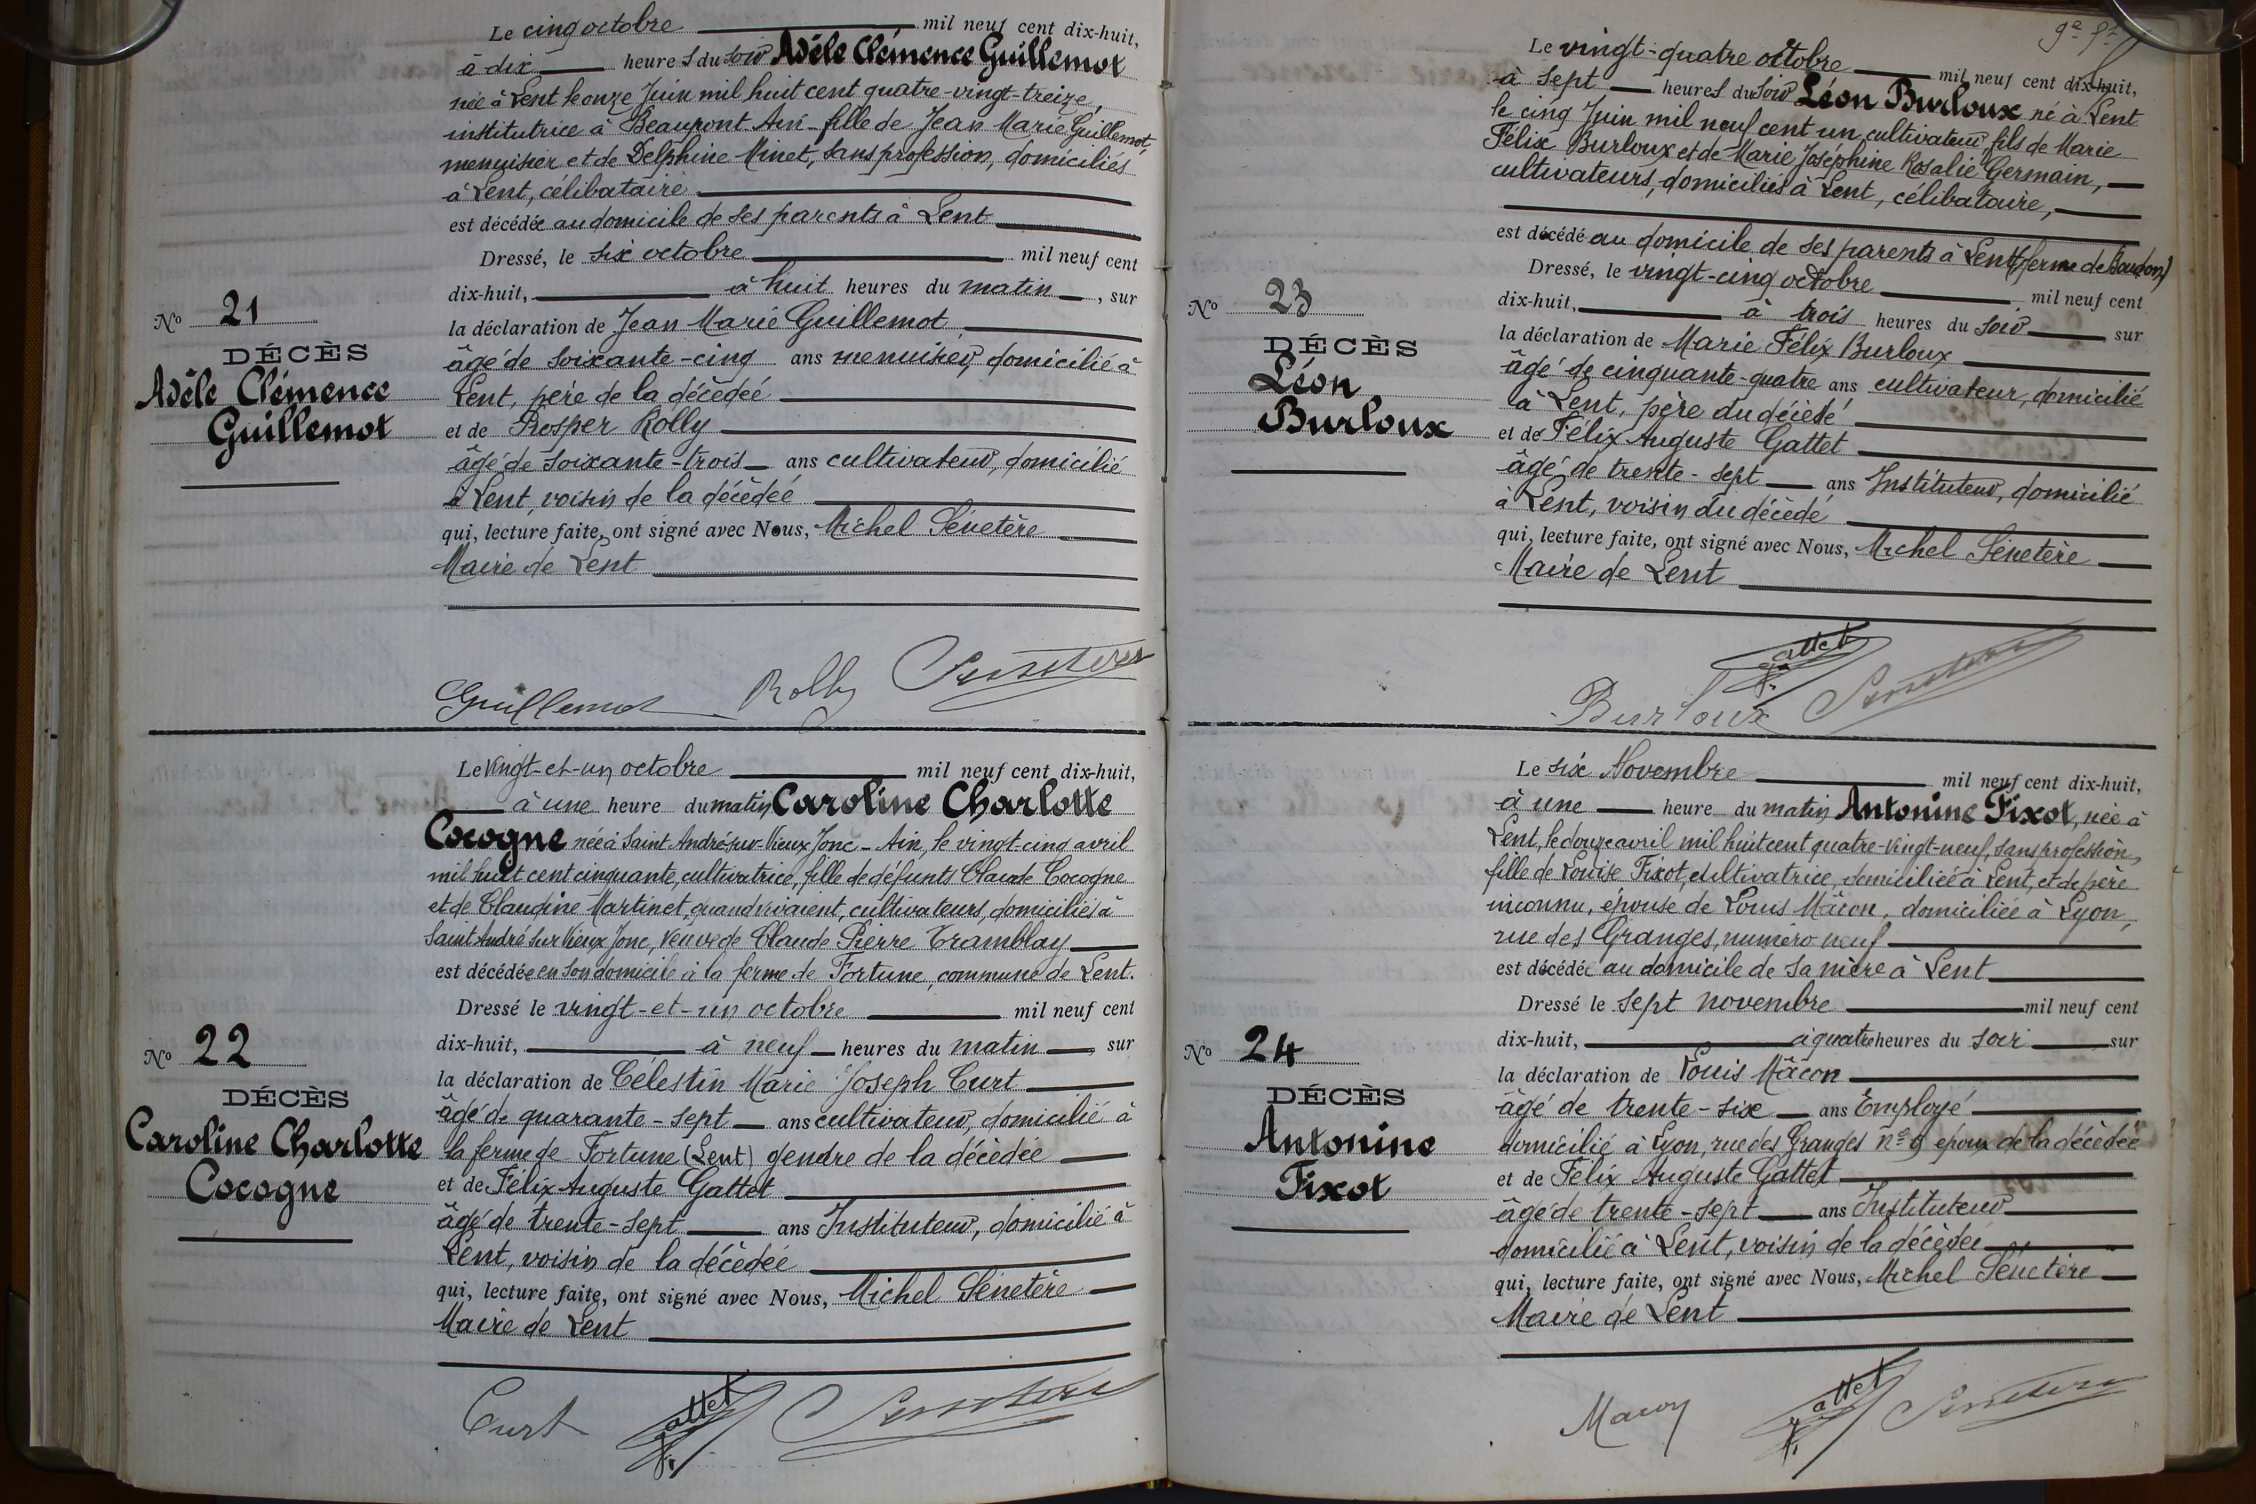 Le cinq octobre mil neuf cent dix-huit,
à dix heures du soir Adèle Clémence Guillemot
née à Lent le onze Juin mil huit cent quatre-vingt-treize,
institutrice à Beaupont Ain - fille de Jean Marie Guillemot,
menuisier et de Delphine Minet, sans profession, domiciliés
à Lent, célibataire
est décédée au domicile de ses parents à Lent
Dressé, le six octobre mil neuf cent
dix-huit, à huit heures du matin, sur
la déclaration de Jean Marie Guillemot
âgé de soixante-cinq ans menuisier, domicilié à
Lent, père de la décédée
et de Prosper Rolly
âgé de soixante-trois ans cultivateur, domicilié
à Lent, voisin de la décédée
qui, lecture faite, ont signé avec Nous, Michel Sénetère
Maire de Lent
No 21
DÉCÈS
Adèle Clémence
Guillemot
Guillemot Rolly Senetere
Le vingt-et-un octobre mil neuf cent dix-huit,
à une heure du matin Caroline Charlotte
Cocogne née à Saint André-sur-Vieux Jonc - Ain, le vingt-cinq avril
mil huit cent cinquante, cultivatrice, fille de défunts Claude Cocogne
et de Claudine Martinet, quand vivaient, cultivateurs, domiciliés à
Saint André sur Vieux Jonc, veuve de Claude Pierre Tramblay
est décédée en son domicile à la ferme de Fortune, commune de Lent.
Dressé le vingt-et-un octobre mil neuf cent
dix-huit, à neuf heures du matin, sur
la déclaration de Célestin Marie Joseph Curt
âgé de quarante-sept ans cultivateur, domicilié à
la ferme de Fortune (Lent) gendre de la décédée
et de Félix Auguste Gattet
âgé de trente-sept ans Instituteur, domicilié à
Lent, voisin de la décédée
qui, lecture faite, ont signé avec Nous, Michel Sénetère
Maire de Lent
No 22
DÉCÈS
Caroline Charlotte
Cocogne
Curt F. Gattet Senetere
Le vingt-quatre octobre mil neuf cent dix-huit,
à sept heures du soir Léon Burloux né à Lent
le cinq Juin mil neuf cent un, cultivateur, fils de Marie
Félix Burloux et de Marie Joséphine Rosalie Germain,
cultivateurs, domiciliés à Lent, célibataire,
est décédé au domicile de ses parents à Lent (ferme de Baudon)
Dressé, le vingt-cinq octobre mil neuf cent
dix-huit, à trois heures du soir sur
la déclaration de Marie Félix Burloux
âgé de cinquante-quatre ans cultivateur, domicilié
à Lent, père du décédé
et de Félix Auguste Gattet
âgé de trente-sept ans Instituteur, domicilié
à Lent, voisin du décédé
qui, lecture faite, ont signé avec Nous, Michel Sénetère
Maire de Lent
No 23
DÉCÈS
Léon
Burloux
Burloux F. Gattet Senetere
Le six Novembre mil neuf cent dix-huit,
à une heure du matin Antonine Fixot, née à
Lent, le douze avril mil huit cent quatre-vingt-neuf, sans profession,
fille de Louise Fixot, cultivatrice, domiciliée à Lent, et de père
inconnu, épouse de Louis Mâcon, domiciliée à Lyon,
rue des Granges, numéro neuf
est décédée au domicile de sa mère à Lent
Dressé le sept novembre mil neuf cent
dix-huit, à quatre heures du soir sur
la déclaration de Louis Mâcon
âgé de trente-six ans Employé
domicilié à Lyon, rue des Granges n° 9 époux de la décédée
et de Félix Auguste Gattet
âgé de trente-sept ans Instituteur
domicilié à Lent, voisin de la décédée
qui, lecture faite, ont signé avec Nous, Michel Sénetère
Maire de Lent
No 24
DÉCÈS
Antonine
Fixot
Macon F. Gattet Senetere